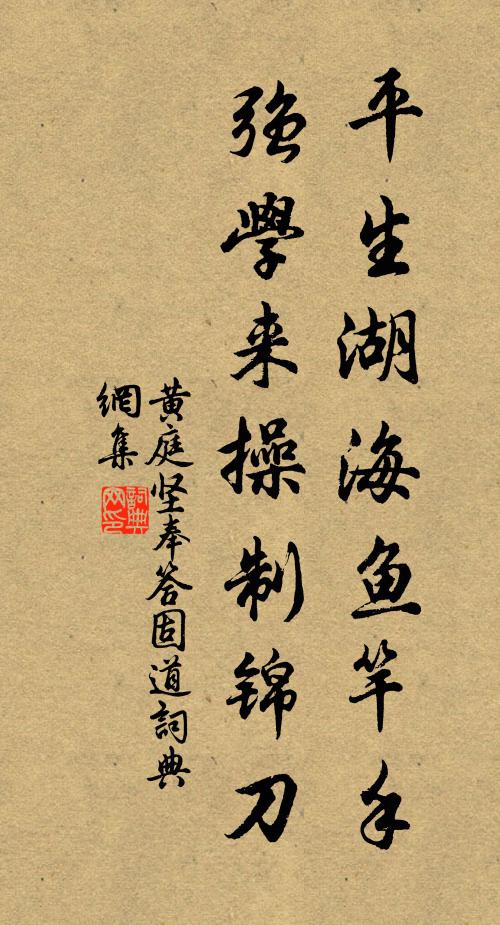 平生湖海鱼竿手
强学来操制锦刀
黄庭坚奉答固道詞典
網集
詞典
网印